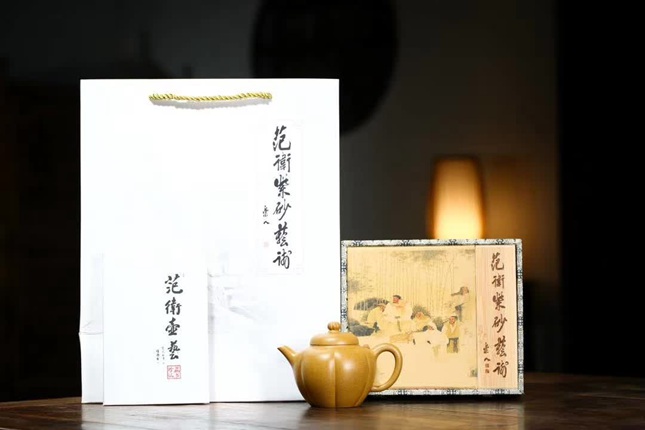 范衛紫砂藝術
范衛壺藝
范衛紫砂藝術